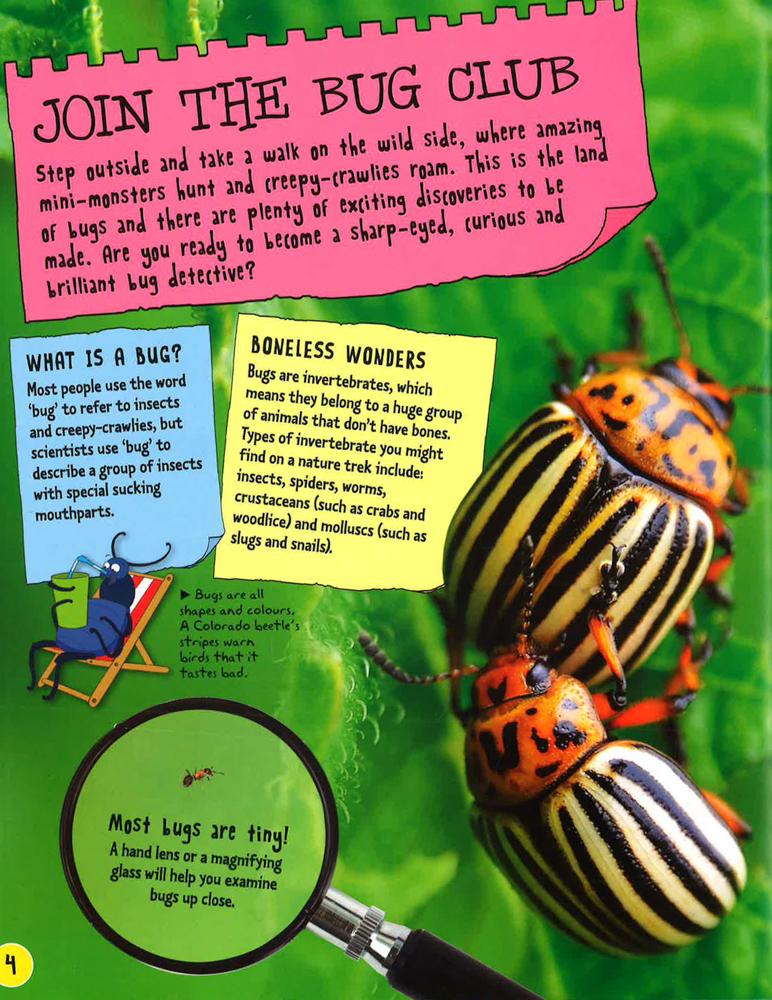 JOIN THE BUG CLUB
Step outside and take a walk on the wild side, where amazing
mini-monsters hunt and creepy-crawlies roam. This is the land
of bugs and there are plenty of exciting discoveries to be
made. Are you ready to become a sharp-eyed, curious and
brilliant bug detective?
WHAT IS A BUG?
Most people use the word
‘bug’ to refer to insects
and creepy-crawlies, but
scientists use ‘bug’ to
describe a group of insects
with special sucking
mouthparts.
BONELESS WONDERS
Bugs are invertebrates, which
means they belong to a huge group
of animals that don’t have bones.
Types of invertebrate you might
find on a nature trek include:
insects, spiders, worms,
crustaceans (such as crabs and
woodlice) and molluscs (such as
slugs and snails).
▶ Bugs are all
shapes and colours.
A Colorado beetle’s
stripes warn
birds that it
tastes bad.
Most bugs are tiny!
A hand lens or a magnifying
glass will help you examine
bugs up close.
4